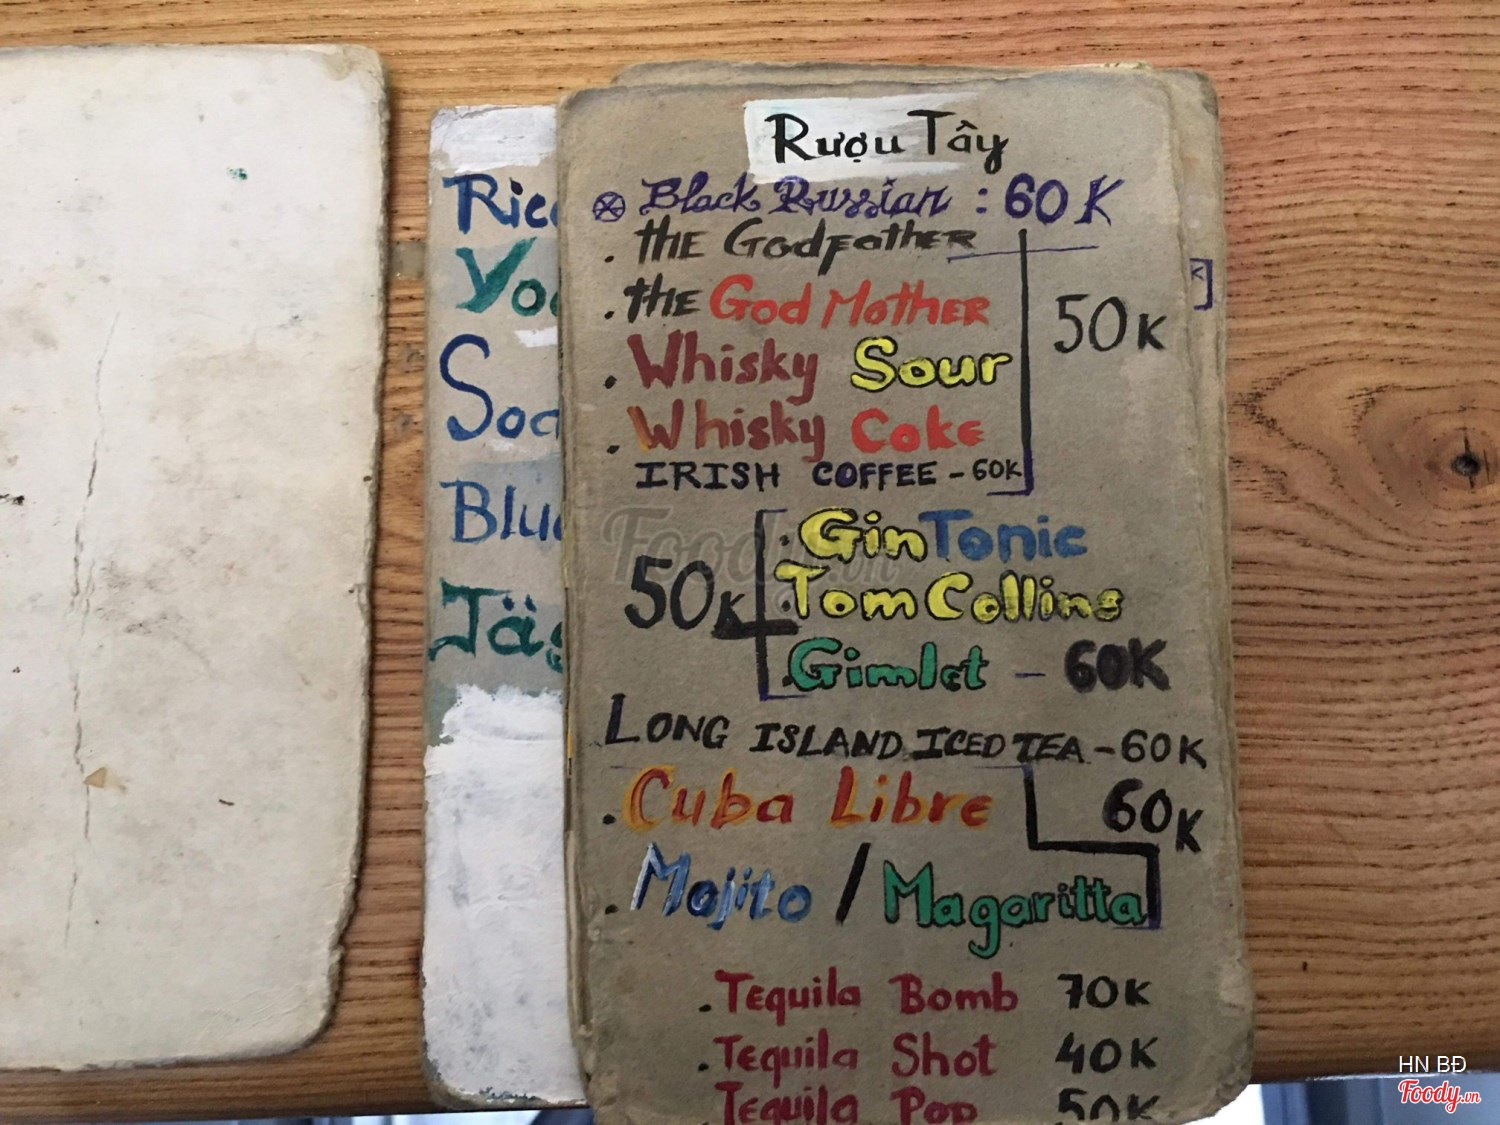 Rượu Tây
Black Russian : 60K
. THE Godfather
. THE God Mother
50K
. Whisky Sour
. Whisky Coke
IRISH COFFEE - 60K
. Gin Tonic
50K
. Tom Collins
. Gimlet - 60K
LONG ISLAND ICED TEA - 60K
. Cuba Libre
60K
. Mojito / Magaritta
. Tequila Bomb 70K
. Tequila Shot 40K
Tequila Pop 50K
Blu
K]
Foody.vn
HN BĐ
Foody.vn